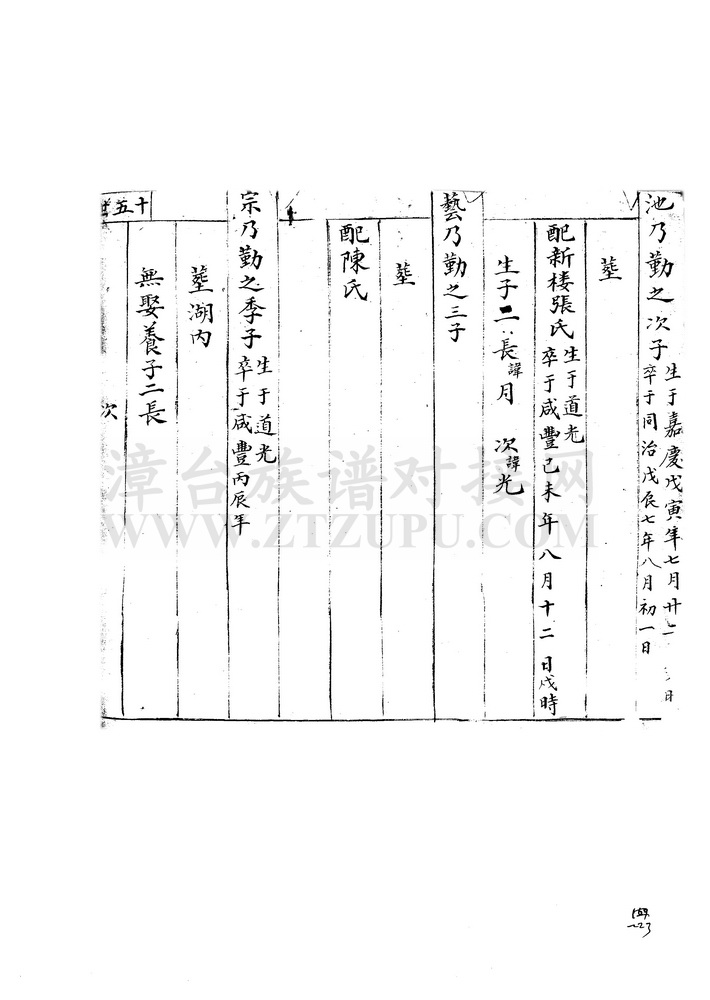 池乃勤之次子 生于嘉慶戊寅年七月廿二 日
卒于同治戊辰七年八月初一日
葬
配新楼張氏 生于道光
卒于咸豐己未年八月十二日戌時
生子二 長諱月 次諱光
藝乃勤之三子
葬
配陳氏
宗乃勤之季子 生于道光
卒于咸豐丙辰年
葬湖内
無娶養子二長
次
十五世
漳台族谱对接网
WWW.ZTZUPU.COM